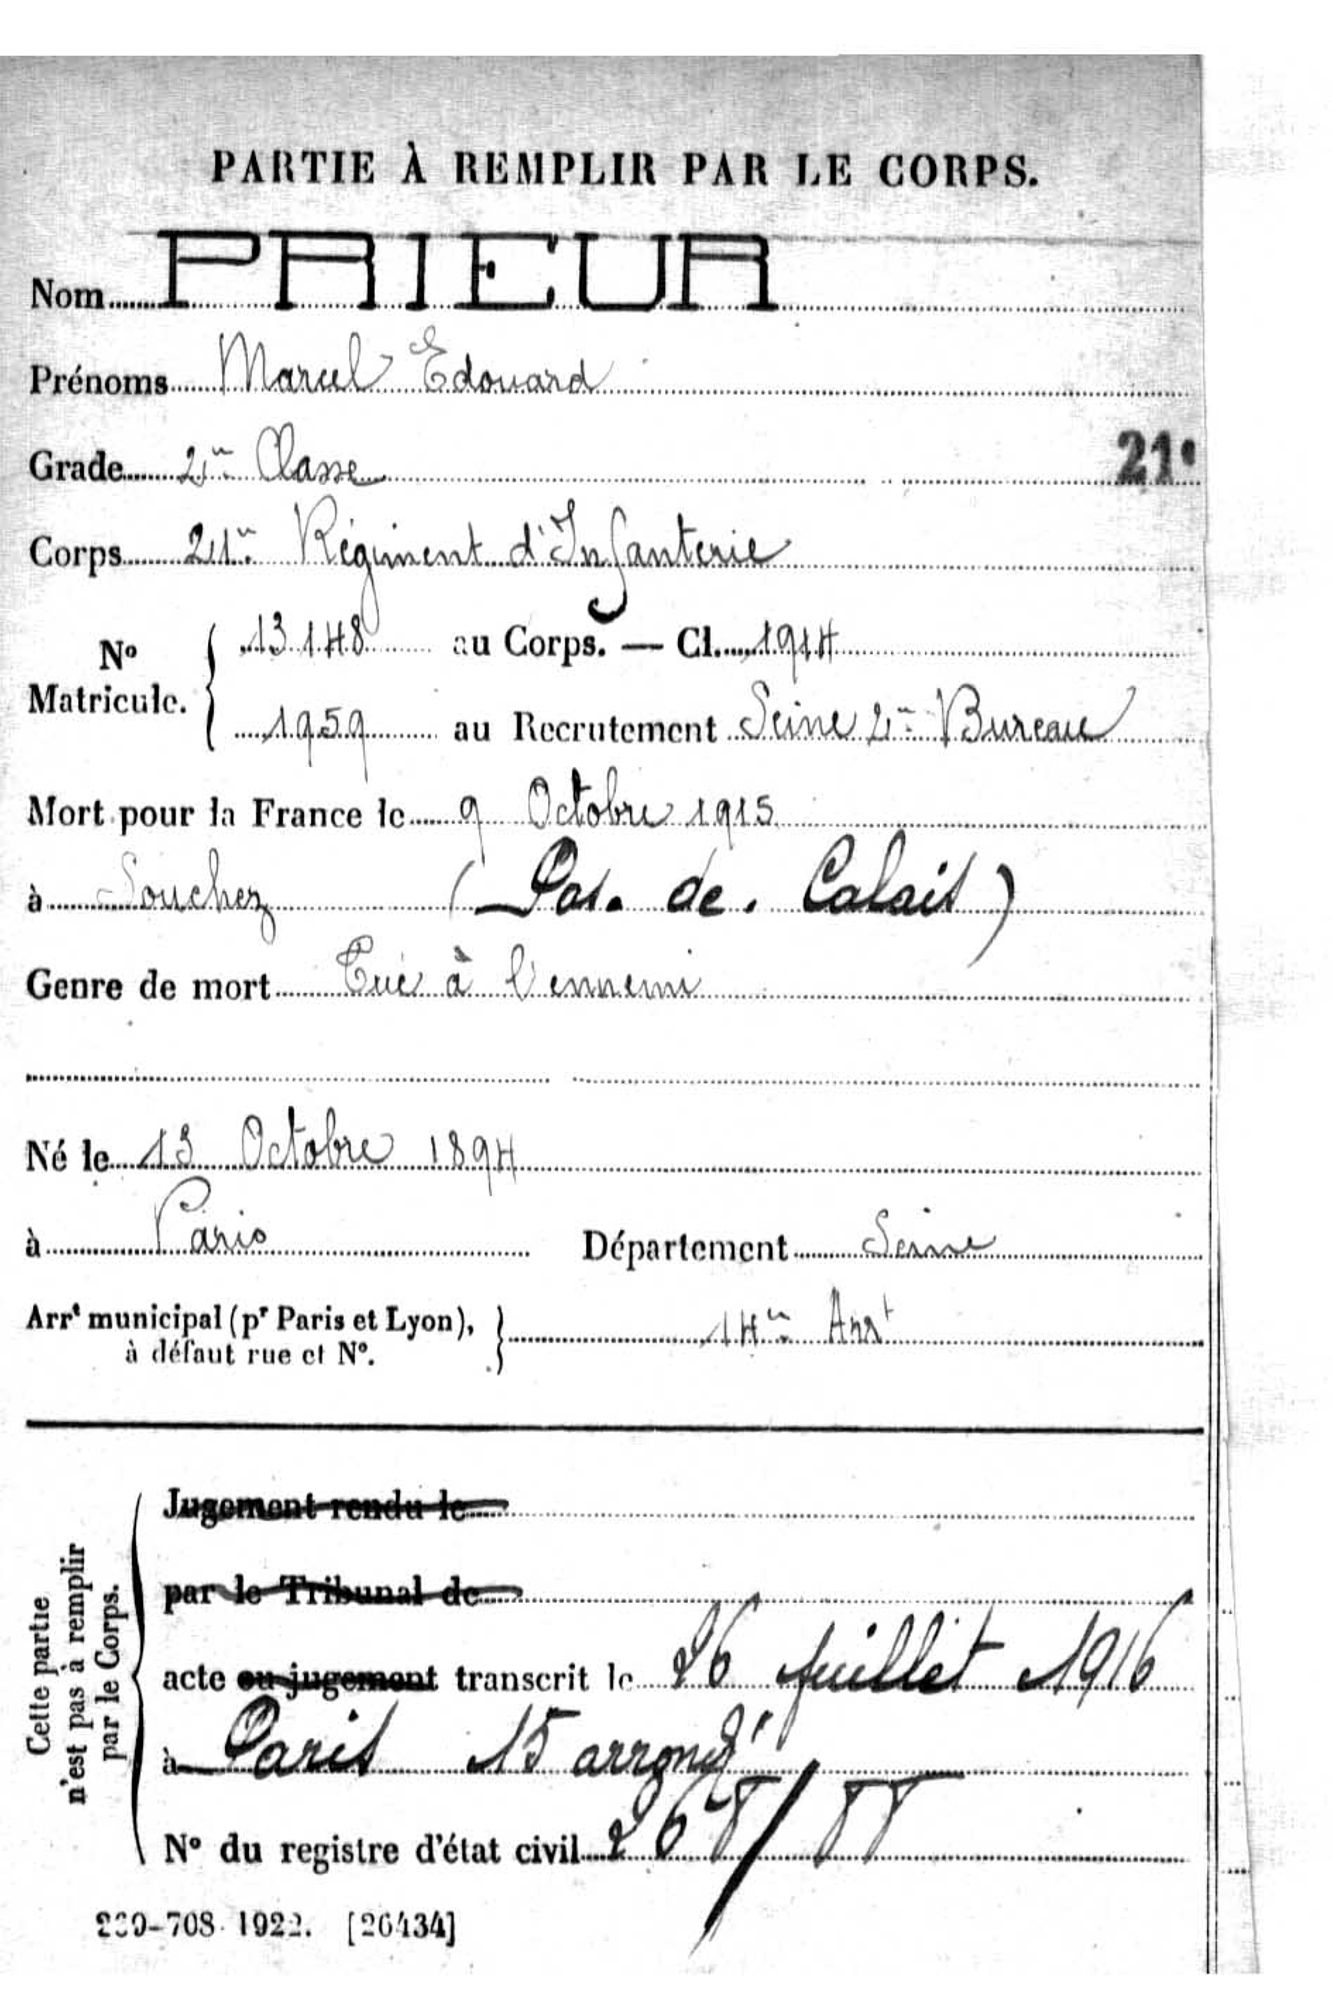 PARTIE À REMPLIR PAR LE CORPS.
Nom PRIEUR
Prénoms Marcel Edouard
Grade 2me Classe
21e
Corps 21me Régiment d'Infanterie
No Matricule. { 13148 au Corps. — Cl. 1914
1959 au Recrutement Seine 2me Bureau
Mort pour la France le 9 Octobre 1915
à Souchez (Pas. de. Calais)
Genre de mort Tué à l'ennemi
Né le 13 Octobre 1894
à Paris Département Seine
Arrt municipal (pr Paris et Lyon), à défaut rue et No. } 14me Arrt
Cette partie n'est pas à remplir par le Corps.
Jugement rendu le
par le Tribunal de
acte ou jugement transcrit le 26 juillet 1916
à Paris 15 arrondt
No du registre d'état civil
708. 1922. [26434]